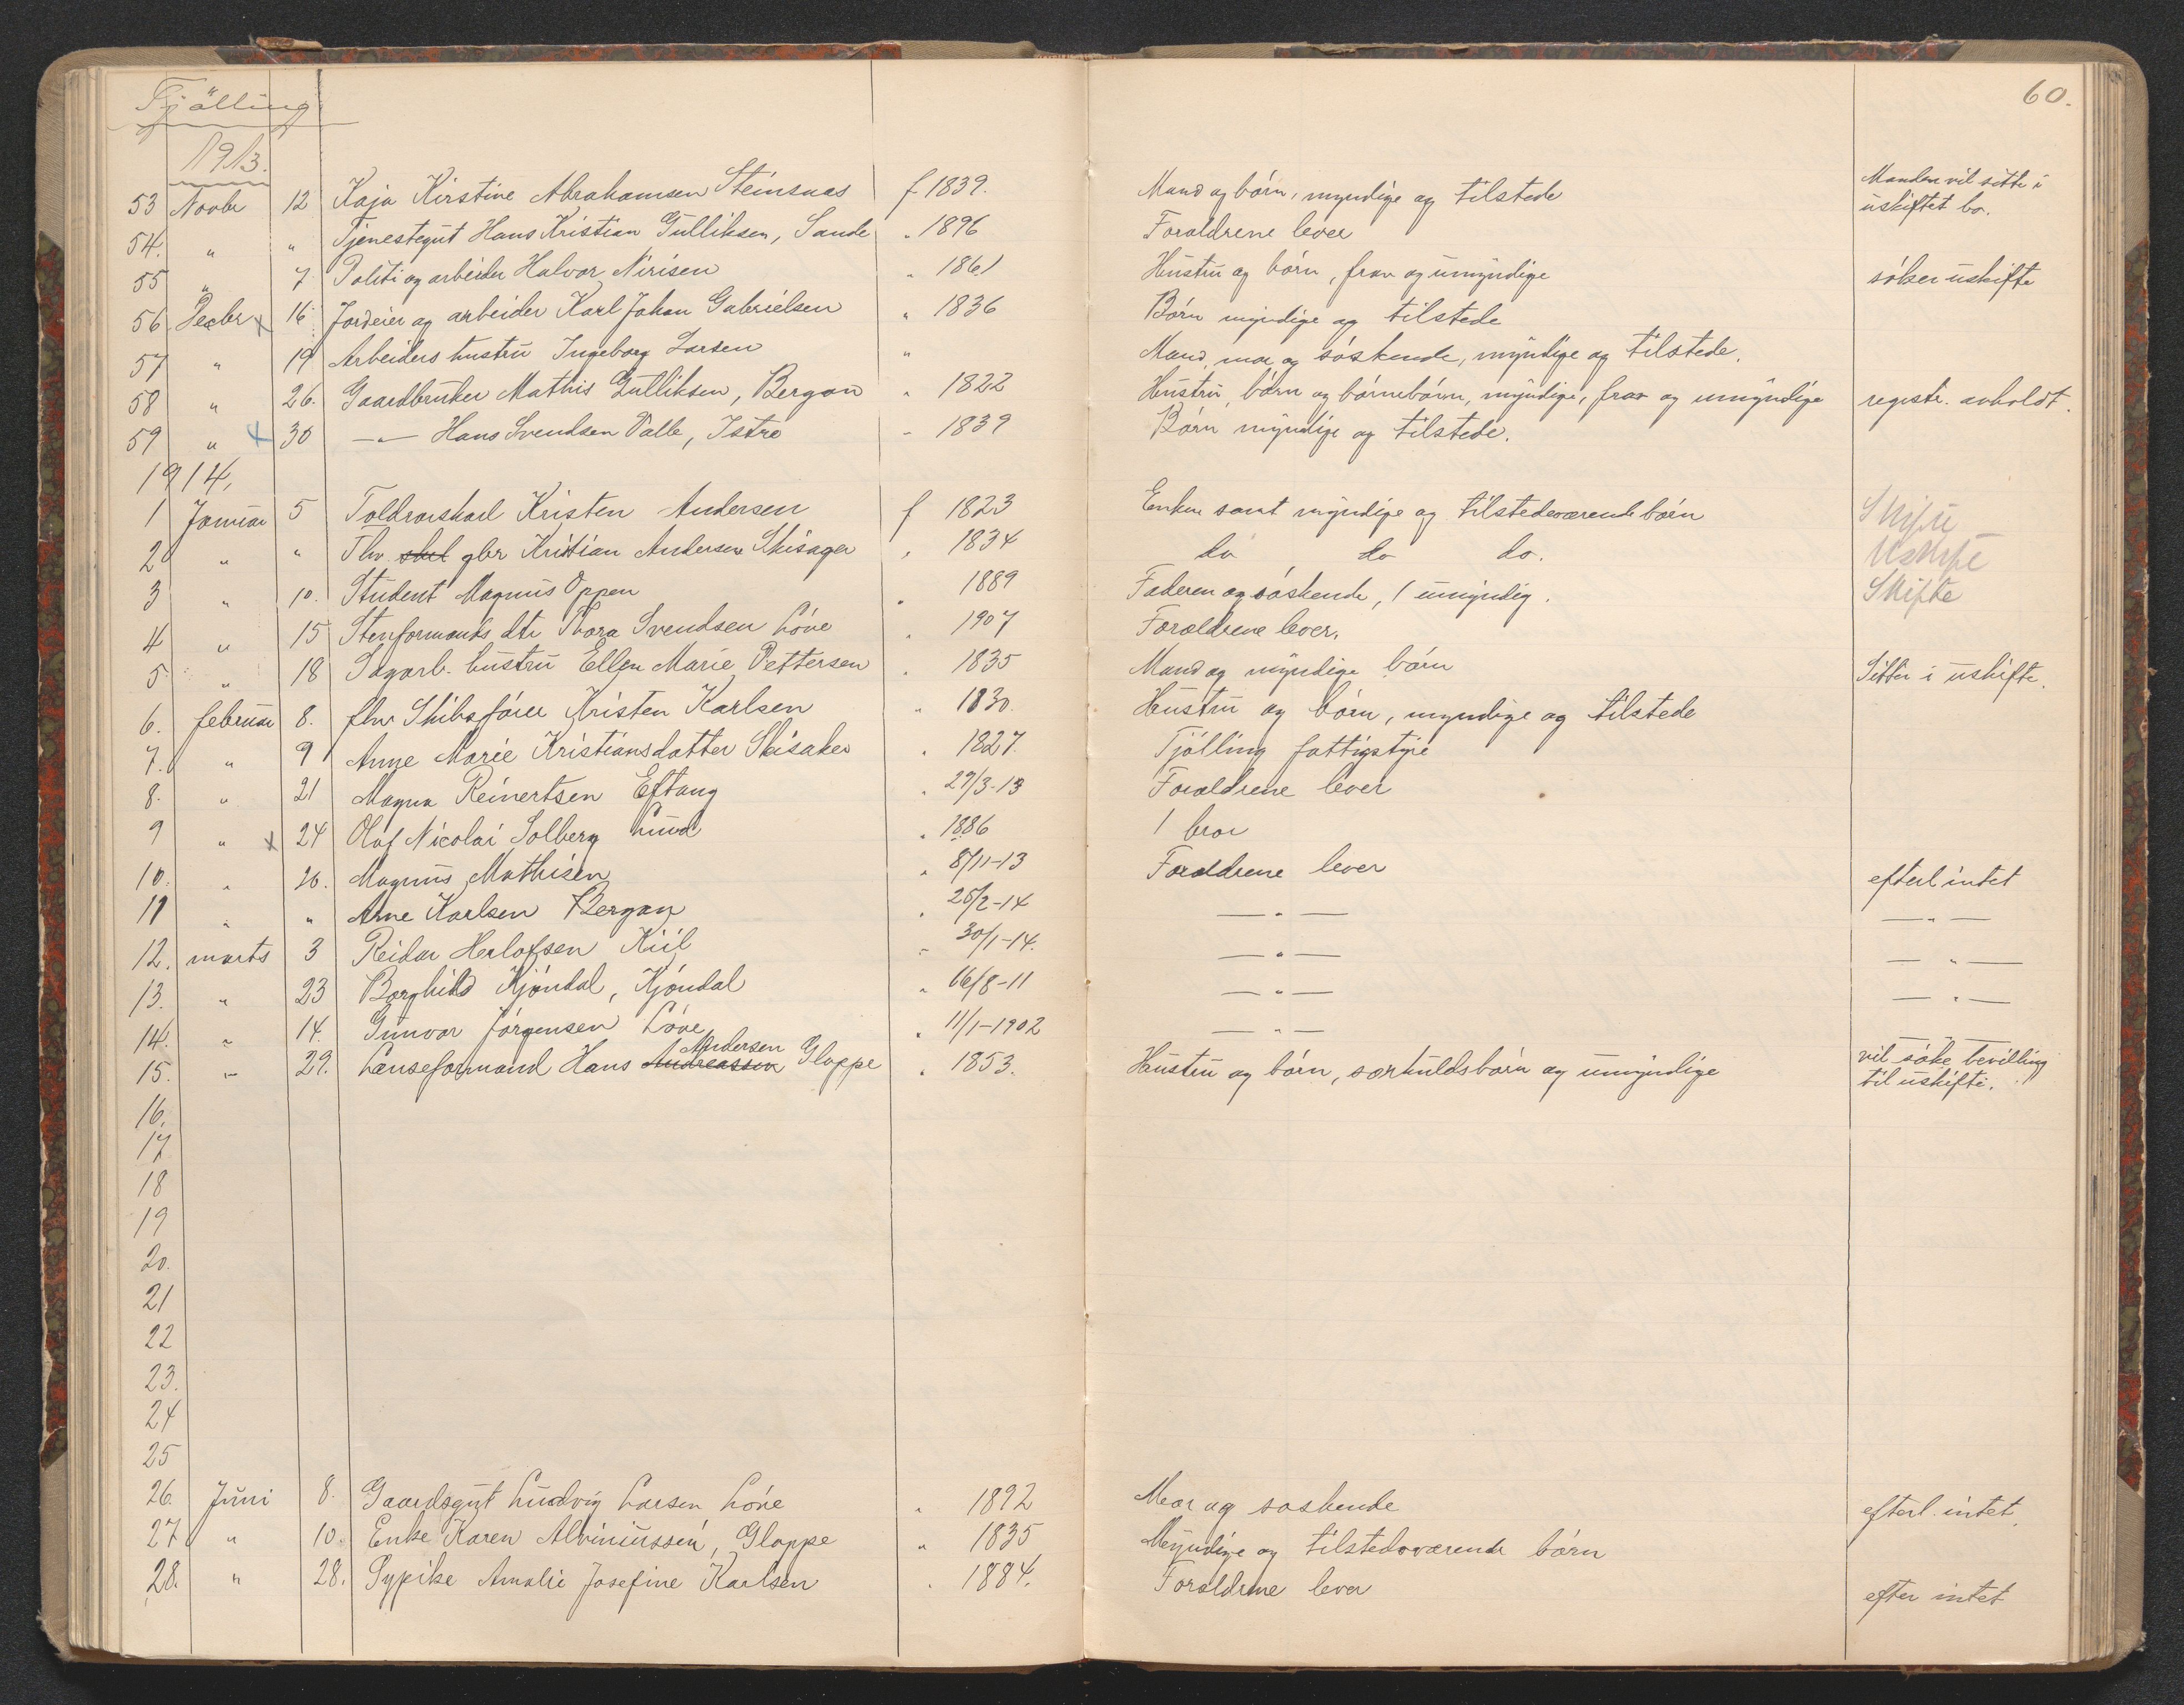 Tjölling
60.
1913.
53 Novbr 12 Kaja Kirstine Abrahamsen Steinsnæs f 1839. Mand og börn, myndige og tilstede Manden vil sitte i uskiftet bo.
54. " " Tjenestegut Hans Kristian Gulliksen, Sande " 1896 Forældrene lever
55 " 7 Politi og arbeider Halvor Nirisen " 1861 Hustru og börn, frav og umyndige söker uskifte
56. Decbr x 16 Jordeier og arbeider Karl Johan Gabrielsen " 1836 Börn myndige og tilstede
57 " 19 Arbeiders hustru Ingeborg Larsen " Mand, mor og söskende, myndige og tilstede.
58 " 26. Gaardbruker Mathis Gulliksen, Bergan " 1822 Hustru, börn og börnebörn, myndige, frav og umyndige registr. avholdt.
59 " x 30 —"— Hans Svendsen Valle, Istre " 1839 Börn myndige og tilstede.
1914,
1 Januar 5 Toldrorskarl Kristen Andersen f 1823 Enken samt myndige og tilstedeværende börn Skifte
2 " " Fhv skel gbr Kristian Andersen Skisager " 1834 do do do. Uskifte
3 " 10. Student Magnus Oppen " 1889 Faderen og söskende, 1 umyndig. Skifte
4 " 15 Stenformands dtr Thora Svendsen Löve " 1907 Forældrene lever.
5 " 18 Sagarb. hustru Ellen Marie Pettersen " 1835 Mand og myndige börn Sitter i uskifte.
6. februar 8. fhv Skibsförer Kristen Karlsen " 1830. Hustru og börn, myndige og tilstede
7. " 9 Anne Marie Kristiansdatter Skisaker " 1827. Tjölling fattigstyre
8. " 21 Magna Reinertsen Eftang " 27/3-13 Forældrene lever
9 " x 24 Olaf Nicolai Solberg Lund " 1886 1 bror
10. " 26. Magnus Mathisen " 8/11-13 Forældrene lever efterl intet
11 " " Arne Karlsen Bergan " 25/2-14 —"— —"—
12. marts 3 Reidar Herlofsen Kiil " 30/1-14. —"— —"—
13. " 23 Borghild Kjöndal, Kjöndal " 16/8-11 —"— —"—
14. " 14. Gunvor Jörgensen Löve " 11/1-1902 —"— —"—
15. " 29. Lænseformand Hans Andreassen Andersen Gloppe " 1853. Hustru og börn, særkuldsbörn og umyndige vil söke bevilling til uskifte.
16.
17
18
19
20.
21
22
23.
24
25
26. Juni 8. Gaardsgut Ludvig Larsen Löve " 1892 Mor og söskende efterl. intet,
27 " 10. Enke Karen Alviniussen, Gloppe " 1835 Myndige og tilstedeværende börn
28. " 28. Sypike Amalie Josefine Karlsen " 1884. Forældrene lever efter intet